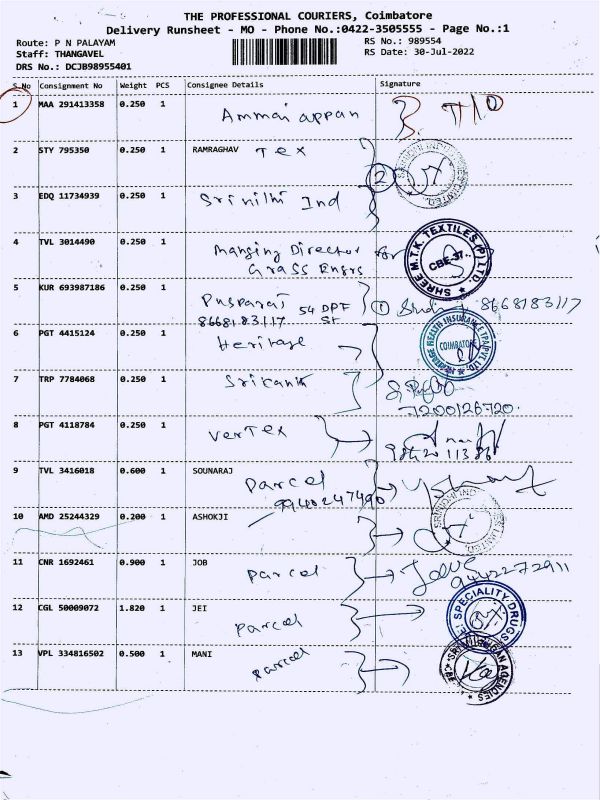 THE PROFESSIONAL COURIERS, Coimbatore
Delivery Runsheet - MO - Phone No.:0422-3505555 - Page No.:1
Route: P N PALAYAM
RS No.: 989554
Staff: THANGAVEL
RS Date: 30-Jul-2022
DRS No.: DCJB98955401
S.No Consignment No Weight PCS Consignee Details Signature
1 MAA 291413358 0.250 1 Ammaiappan
2 STY 795350 0.250 1 RAMRAGHAV Tex
3 EDQ 11734939 0.250 1 Srinithi Ind
2
4 TVL 3014490 0.250 1 Manging Director for
Grass Engrs
SHREE M.T.K. TEXTILES (P) LTD.
CBE-37.
5 KUR 693987186 0.250 1 Pusparaj 54 DPF 1 8668183117
8668183117 St
6 PGT 4415124 0.250 1 Heritage
HERITAGE HEALTH INSURANCE TPA PVT LTD.
COIMBATORE
7 TRP 7784068 0.250 1 Srikanth
7200126720
8 PGT 4118784 0.250 1 Vertex
9 TVL 3416018 0.600 1 SOUNARAJ Parcel
9940247490
10 AMD 25244329 0.200 1 ASHOKJI
11 CNR 1692461 0.900 1 JOB Parcel
9442272911
12 CGL 50009072 1.820 1 JEI Parcel
SPECIALITY DRUGS
13 VPL 334816502 0.500 1 MANI Parcel
AGENCIES